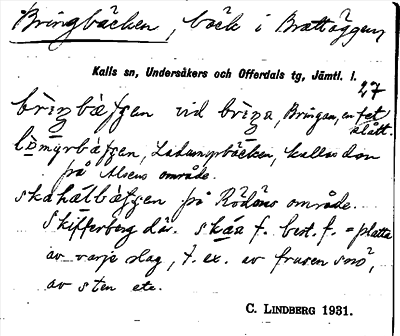 Bringbäcken, bäck i Brattåggen
Kalls sn, Undersåkers och Offerdals tg, Jämtl. l.
27
vid Bringan, en fet slått.
Lidmyrbäcken, kallas den
på Alsens område.
på Rödöns område.
Skifferberg där. skáa f. best. f. = platta
av varje slag, t. ex. av frusen snö,
av sten etc.
C. LINDBERG 1931.